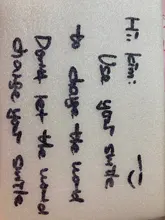 Hi. kim:
Use your smile
to chage the world
Don't let the world
change your smile